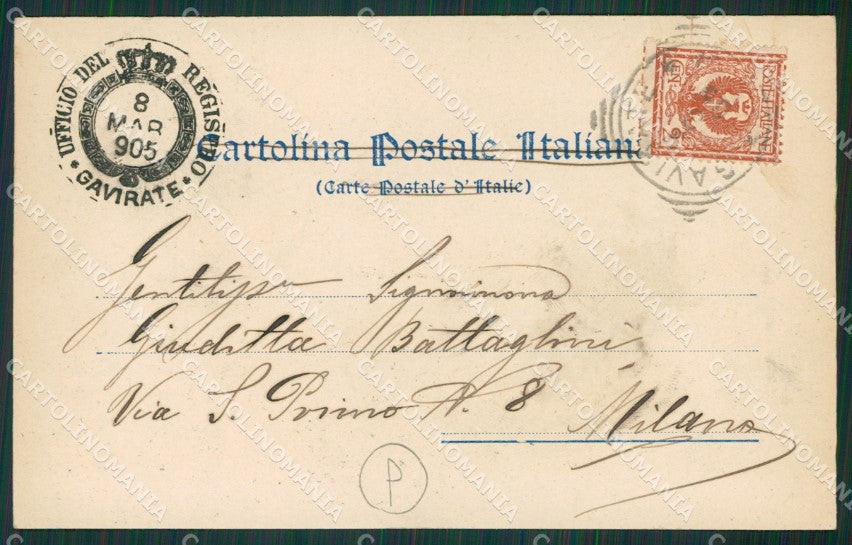 UFFICIO DEL REGISTRO
8
MAR
905
* GAVIRATE *
POSTE ITALIANE
GAVIRATE
Cartolina Postale Italiana
(Carte Postale d'Italie)
Signorina
Giuditta Battaglini
Via S. Primo N. 8 Milano
P
CARTOLINOMANIA